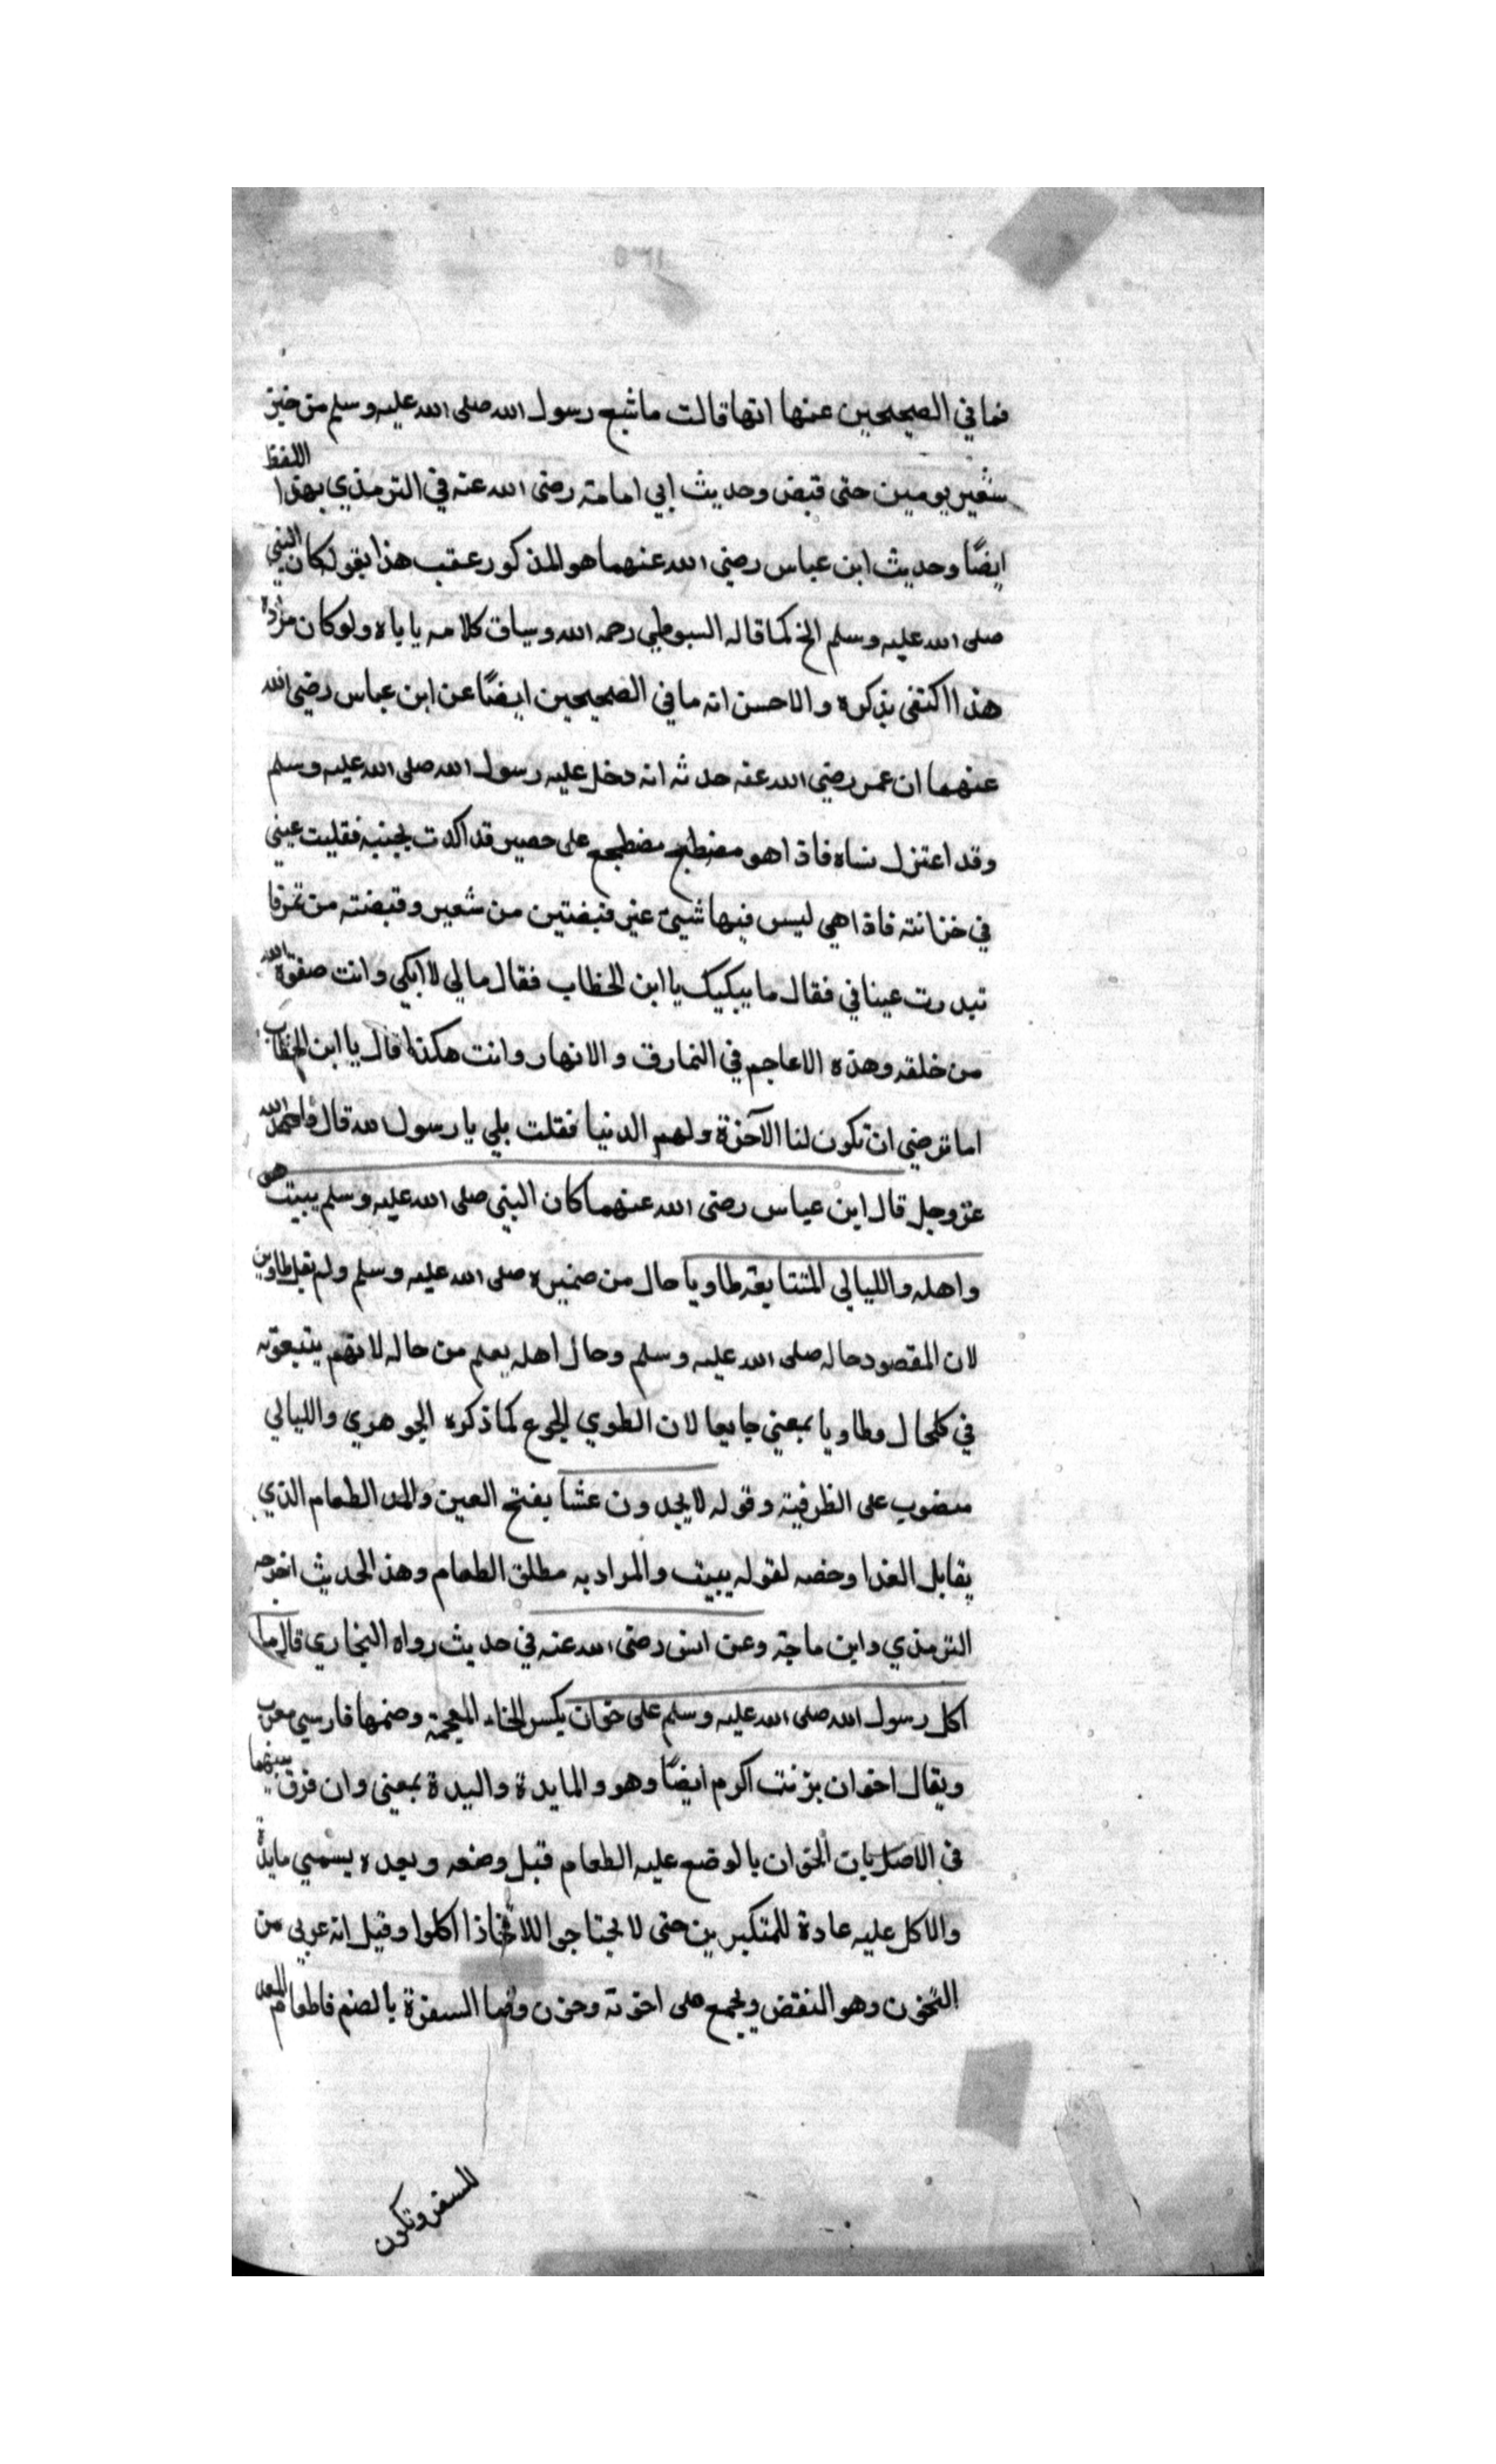 فما في الصحيحين عنها انها قالت ما شبع رسول الله صلى الله عليه وسلم من خبز
شعير يومين حتى قبض وحديث ابي امامة رضى الله عنه في الترمذي بهذا اللفظ
ايضًا وحديث ابن عباس رضي الله عنهما هو المذكور عقب هذا بقوله كان النبي
صلى الله عليه وسلم الخ كما قاله السيوطي رحمه الله وسياق كلامه ياباه ولو كان مراده
هذا اكتفى بذكره والاحسن انه ما في الصحيحين ايضًا عن ابن عباس رضي الله
عنهما ان عمر رضي الله عنه حدثه انه دخل عليه رسول الله صلى الله عليه وسلم
وقد اعتزل نساه فاذا هو مضطجع مضطجع على حصير قد اثرت بجنبه فقلبت عيني
في خزانته فاذا هي ليس فيها شيئ غير قبضتين من شعير وقبضته من تمر فا
تبدرت عيناي فقال ما يبكيك يا ابن الخطاب فقال مالي لا ابكي وانت صفوة الله
من خلقه وهذه الاعاجم في النمارق والانهار وانت هكذا قال يا ابن الخطاب
اما ترضي ان تكون لنا الآخرة ولهم الدنيا فقلت بلي يا رسول الله قال فاحمد الله
عز وجل قال ابن عباس رضى الله عنهما كان النبي صلى الله عليه وسلم يبيت هو
واهله والليالي المتتابعة طاويا حال من ضميره صلى الله عليه وسلم ولم يقل طاوين
لان المقصود حاله صلى الله عليه وسلم وحال اهله يعلم من حاله لانهم يتبعونه
في كلحال وطاويا بمعني جايعا لان الطوي الجوع كما ذكره الجوهري والليالي
منصوب على الظرفية وقوله لا يجدون عشا بفتح العين والمد الطعام الذي
يقابل الغدا وخصه لقوله يبيت والمراد به مطلق الطعام وهذا الحديث اخرجه
الترمذي وابن ماجة وعن انس رضى الله عنه في حديث رواه البخاري قال ما
اكل رسول الله صلى الله عليه وسلم على خوان بكسر الخاء المعجمة وضمها فارسي معرب
ويقال اخوان بزنت اكرم ايضًا وهو والمايدة والبدة بمعنى وان فرق بينهما
في الاصل بان الخوان بالوضع عليه الطعام قبل وضعه وبعده يسمي مايدة
والاكل عليه عادة للمتكبرين حتى لا يحتاجوا للانحنا اذا اكلوا وقيل انه عربى من
التخون وهو النقض ويجمع على اخونة وخون واما السفرة بالضم فاطعام المعد
للسفر وتكون